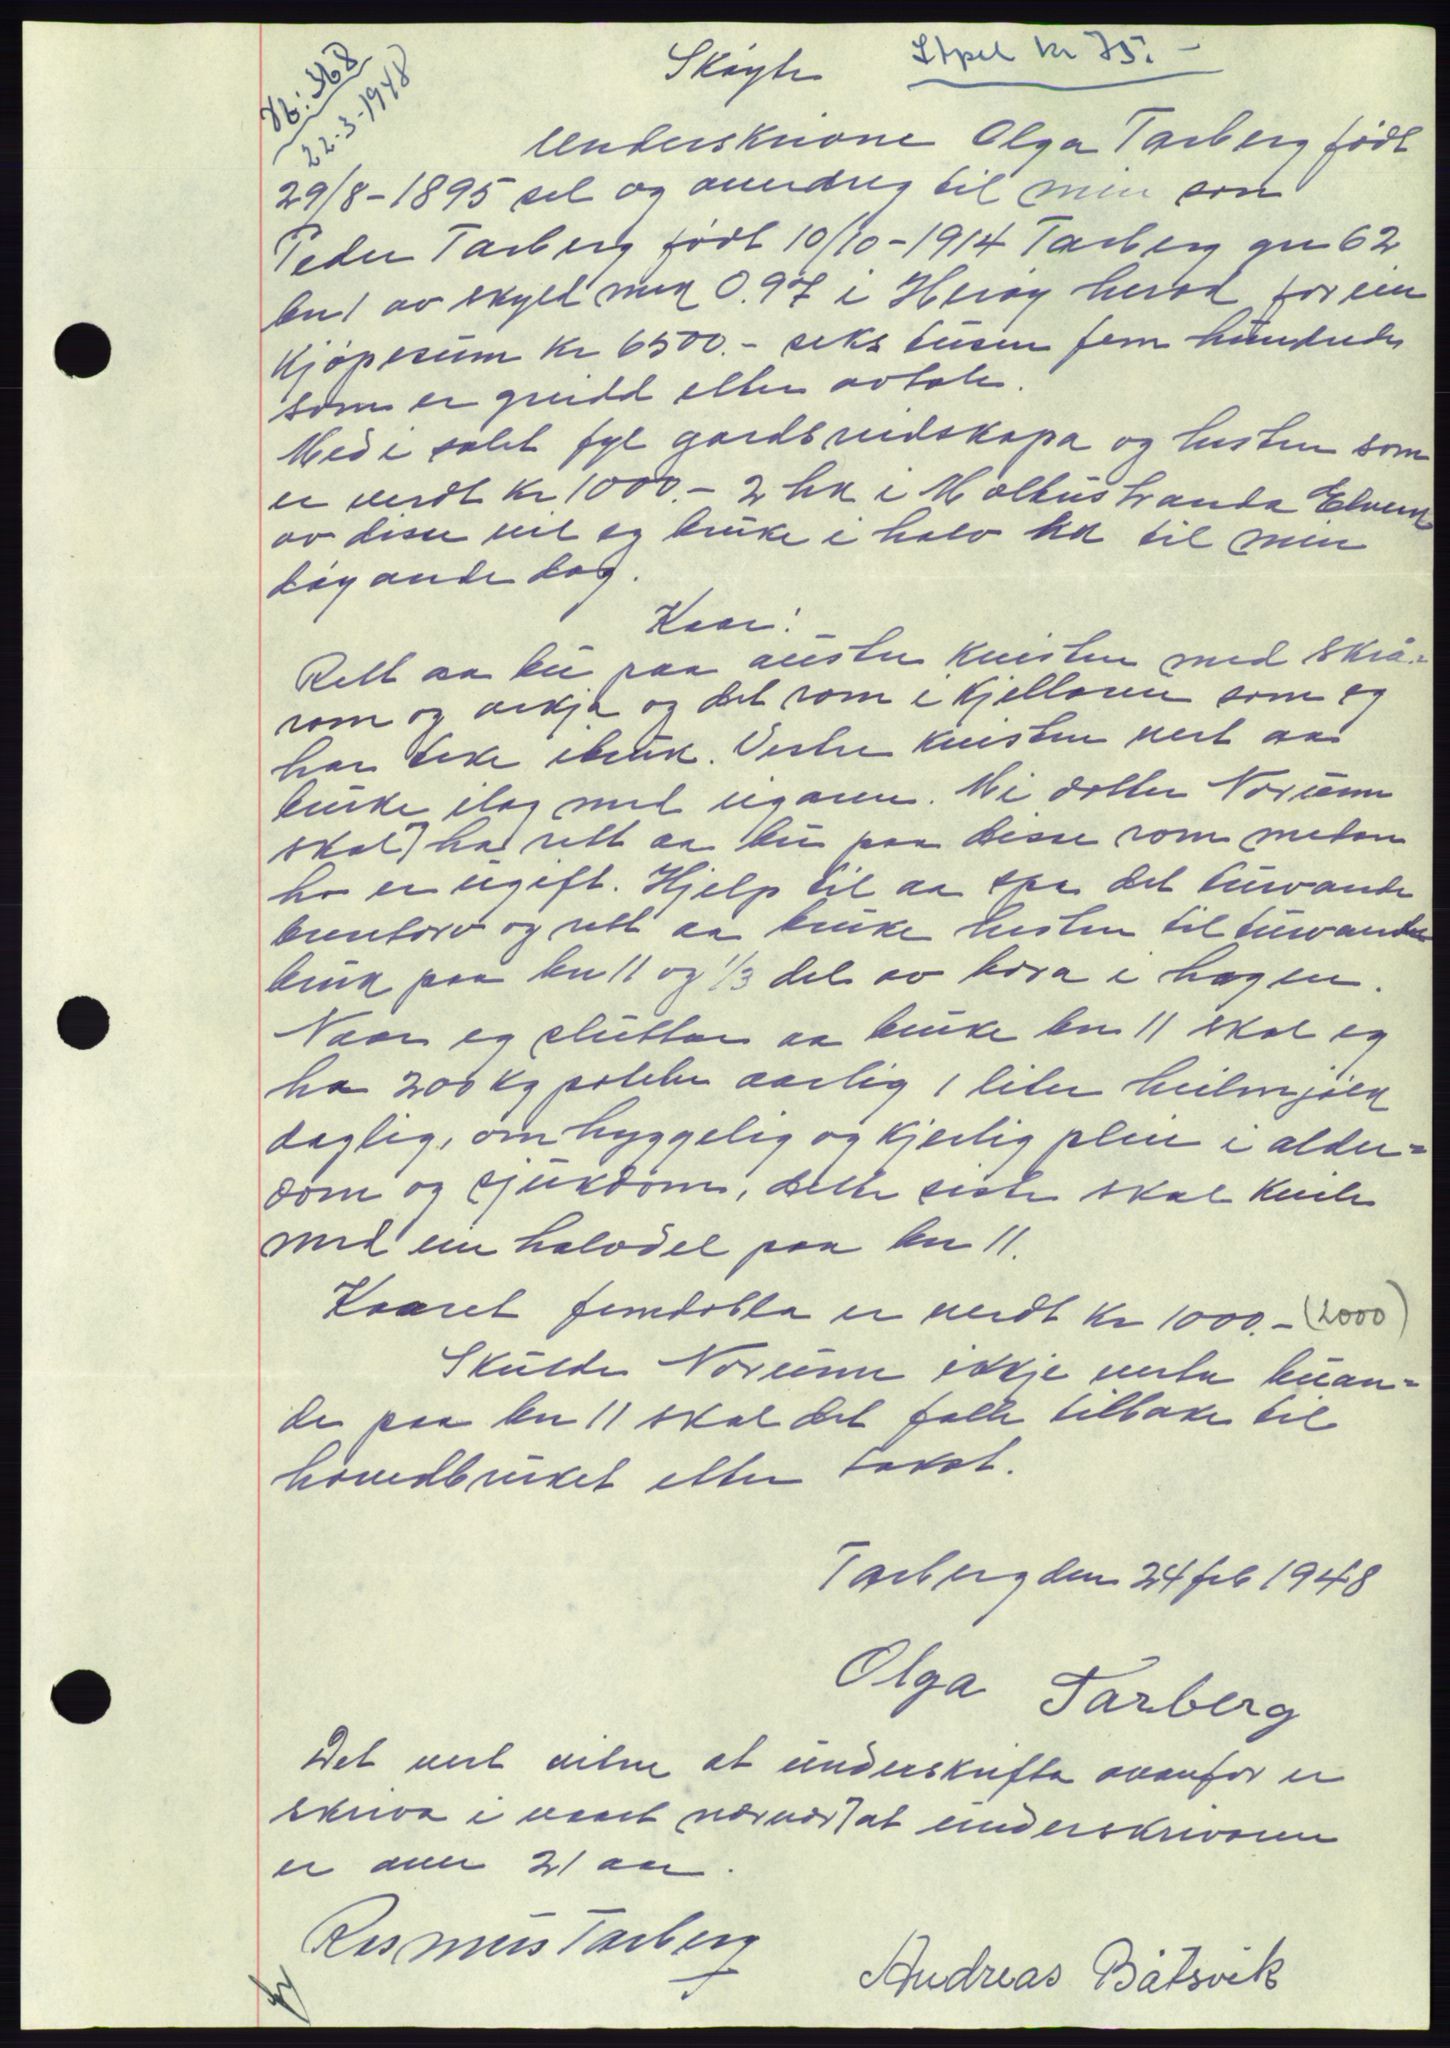 Skøyte
Stpel kr 75.-
Nb: 368
22-3-1948
Underskrivne Olga Tarberg født
29/8-1895 sel og overdreg til min son
Peder Tarberg født 10/10-1914 Tarberg gn 62
bn 1 av skyld mrk 0.97 i Herøy herad for ein
kjøpesum kr 6500.- seks tusen fem hundrede
som er greidd etter avtale.
Med i salet fyl gardsreidskapa og hesten som
er verdt kr 1000.- 2 hk i Moltustranda Elverk
av disse vil eg bruke i halv hk til min
døyande dag.
Kaar:
Rett aa bu paa austre kvisten med skrå=
rom og arkja og det rom i kjellaren som eg
har teke ibruk. Vestre kvisten vert aa
bruke ilag med eigaren. Mi dotter Norunn
skal ha rett aa bu paa disse rom medan
ho er ugift. Hjelp til aa spa det turvande
brentorv og rett aa bruke hesten til turvande
bruk paa bn 11 og 1/3 del av bæra i hagen.
Naar eg sluttar aa bruke bn 11 skal eg
ha 200 kg poteter aarlig 1 liter heilmjølk
daglig, omhyggelig og kjerlig pleie i alder=
dom og sjukdom, dette siste skal kvile
med ein halvdel paa bn 11.
Kaaret femdobla er verdt kr 1000.- (2000)
Skulde Norunn ikkje verta buan=
de paa bn 11 skal det falle tilbake til
hovedbruket etter takst.
Tarberg den 24 feb 1948
Olga Tarberg
Det vert vitne at underskrifta ovanfor er
skriva i vaart nærvær at underskrivaren
er over 21 aar.
Rasmus Tarberg
Andreas Båtsvik